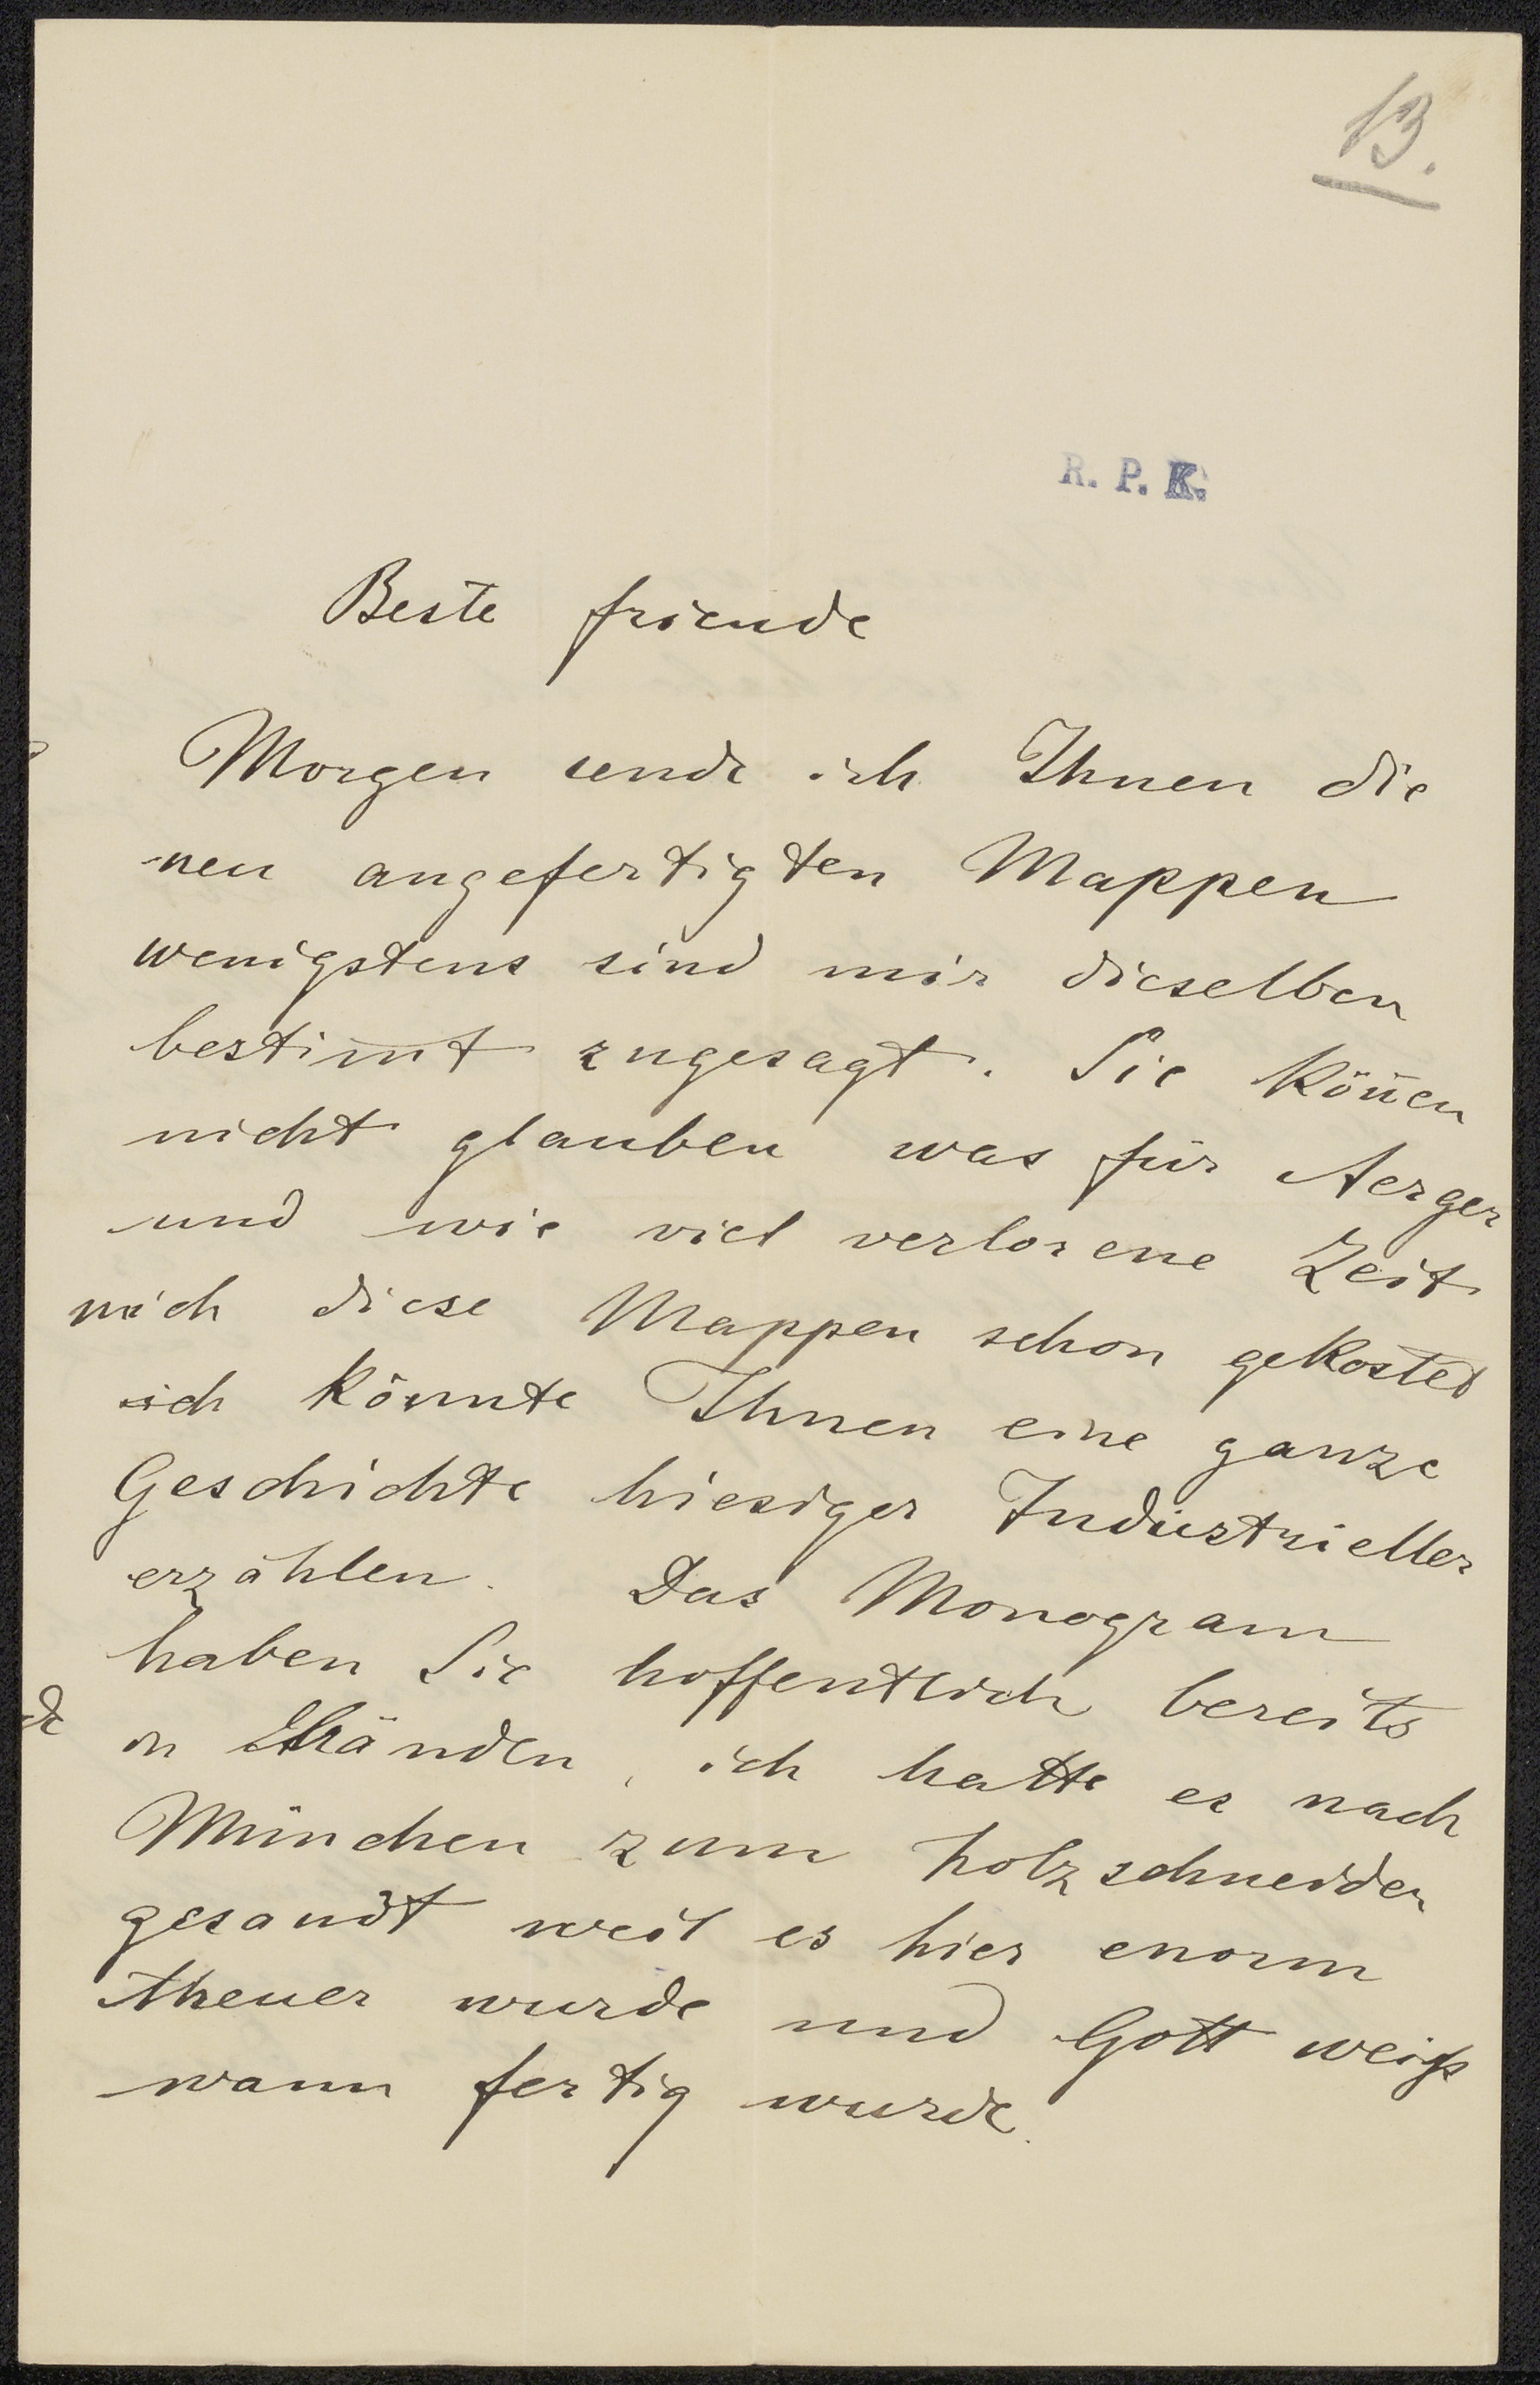 13.
R. P. K.
Beste friende
Morgen sende ich Ihnen die
neu angefertigten Mappen
wenigstens sind mir dieselben
bestim̅t zugesagt. Sie kön̅en
nicht glauben was für Aerger
und wie viel verlorene Zeit
mich diese Mappen schon gekostet
ich könnte Ihnen eine ganze
Geschichte hiesiger Industrieller
erzählen. Das Monogram
haben Sie hoffentlich bereits
in Händen, ich hatte es nach
München zum holzschneiden
gesandt weil es hier enorm
theuer wurde und Gott weiß
wann fertig wurde.